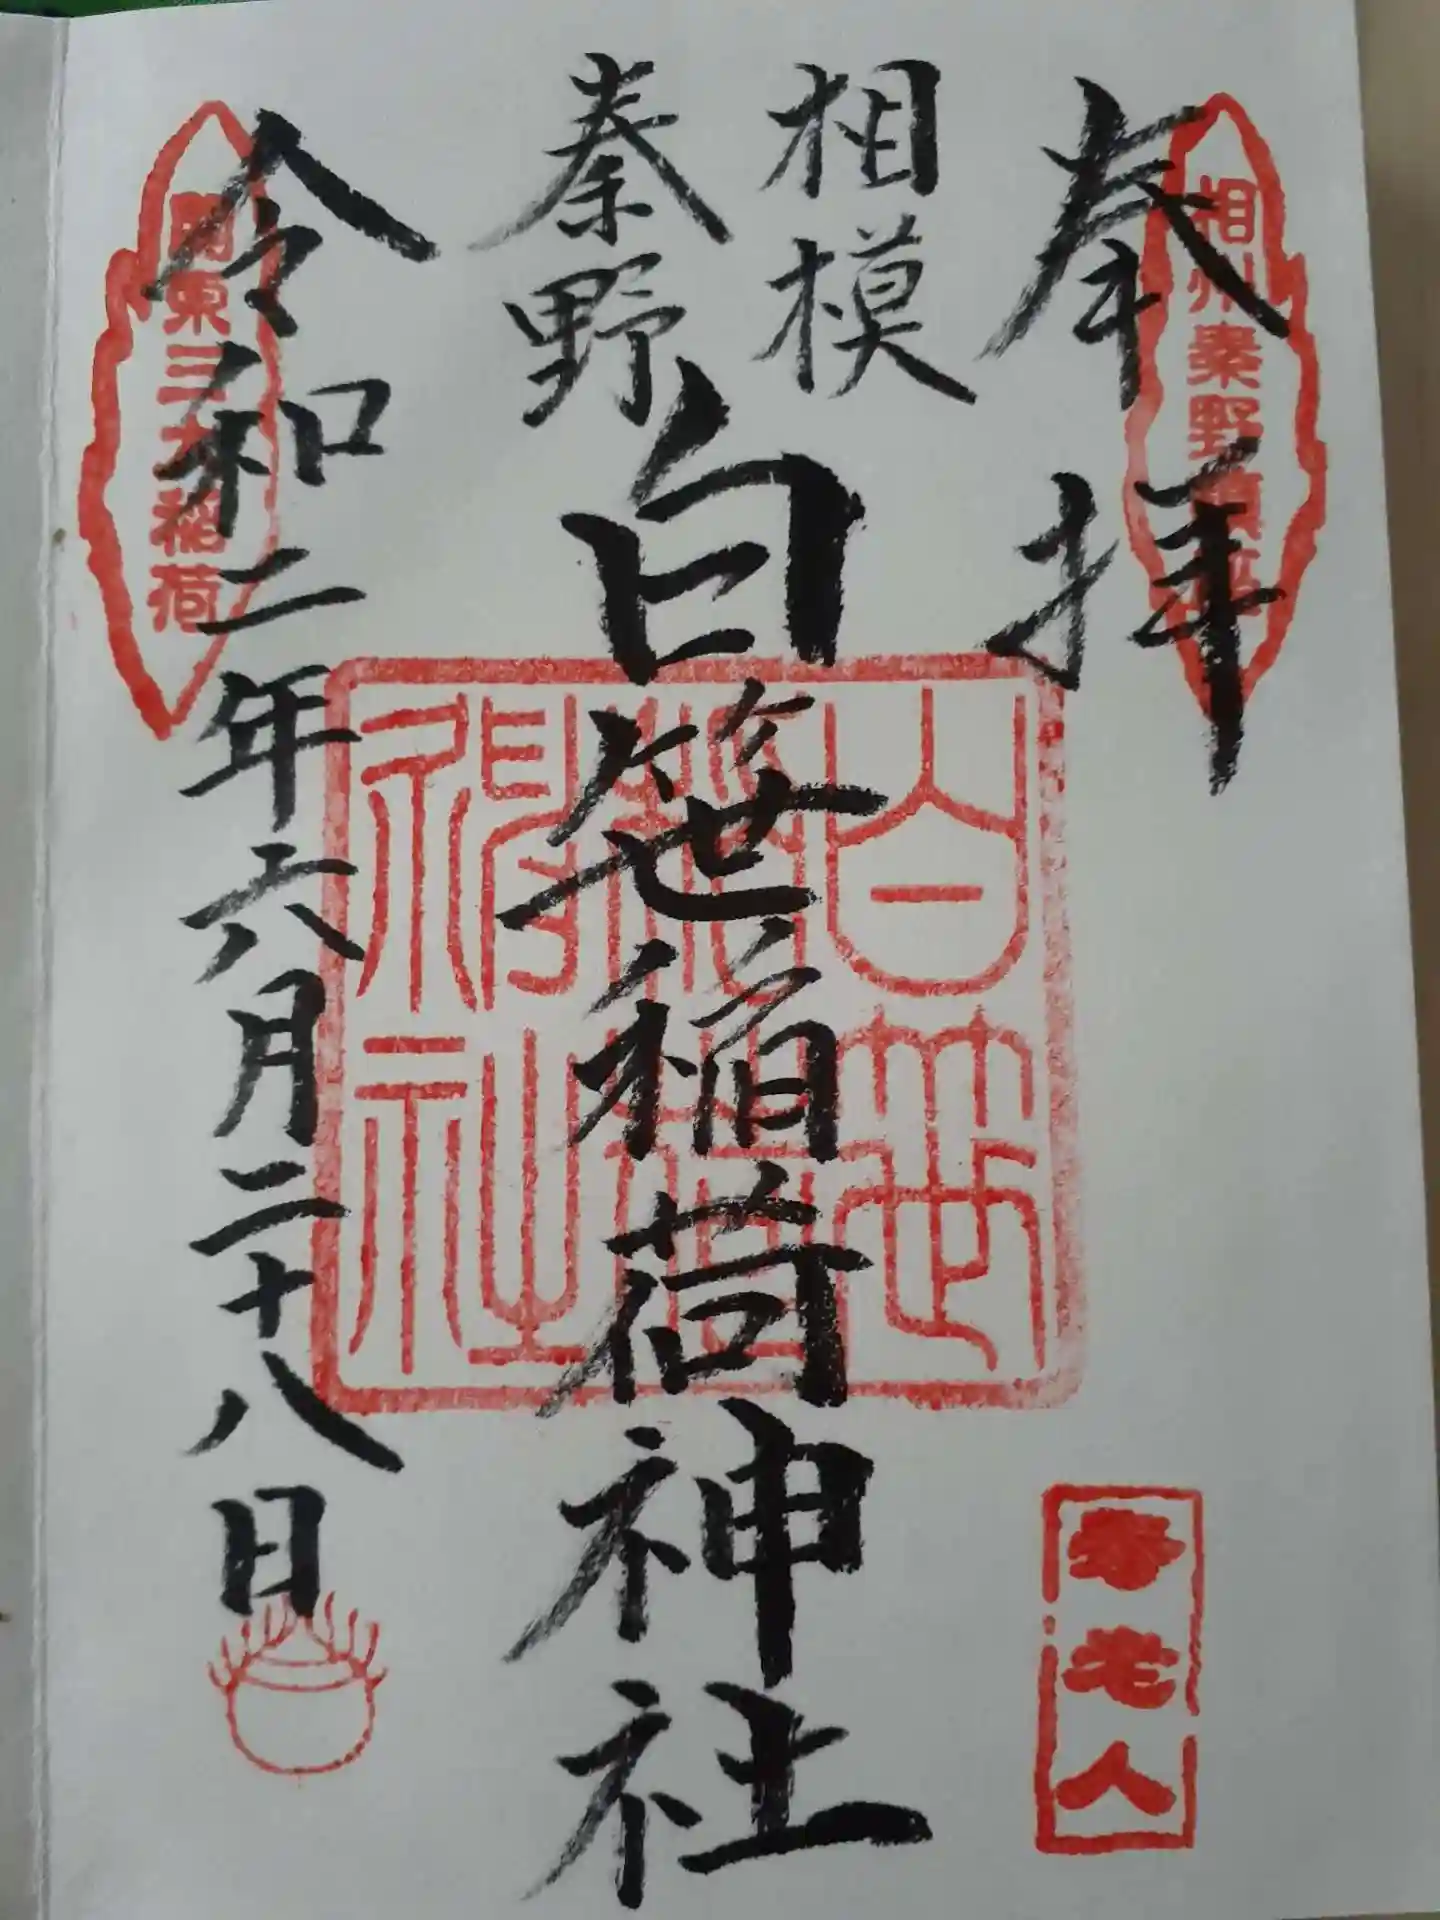 奉拝
相州秦野鎮座
相模
秦野
白笹稲荷神社
白笹稲荷神社
令和二年六月二十八日
関東三大稲荷
寿老人